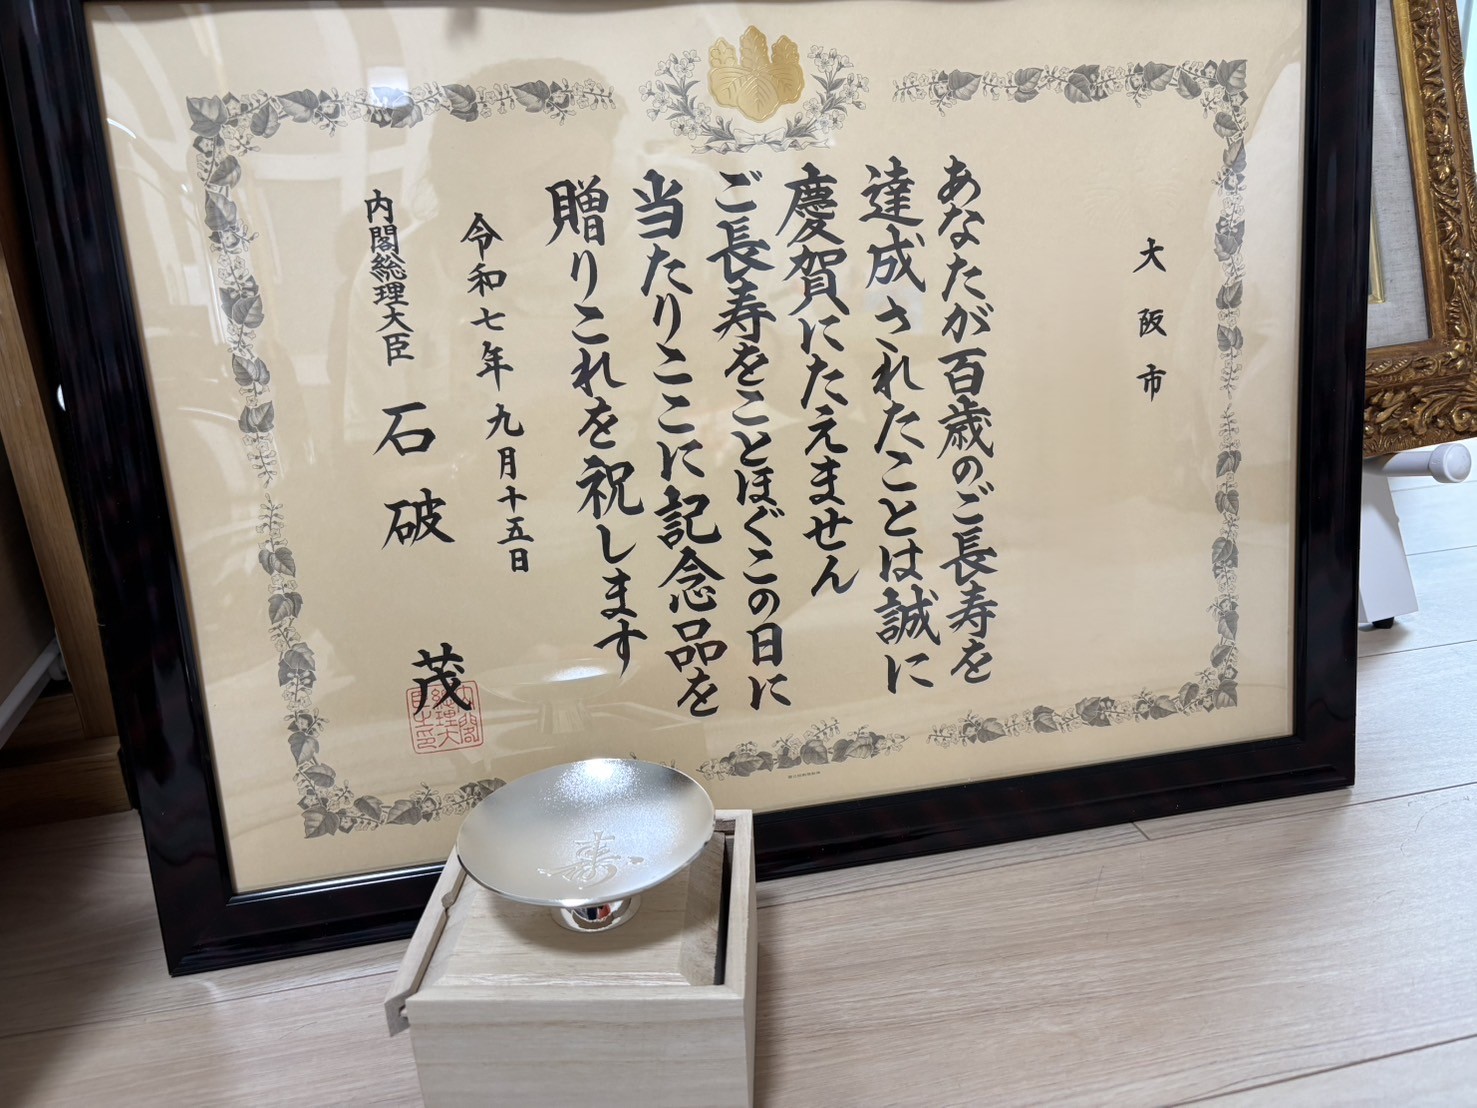 大阪市
あなたが百歳のご長寿を
達成されたことは誠に
慶賀にたえません
ご長寿をことほぐこの日に
当たりここに記念品を
贈りこれを祝します
令和七年九月十五日
内閣総理大臣 石破 茂
内閣総理大臣之印
寿